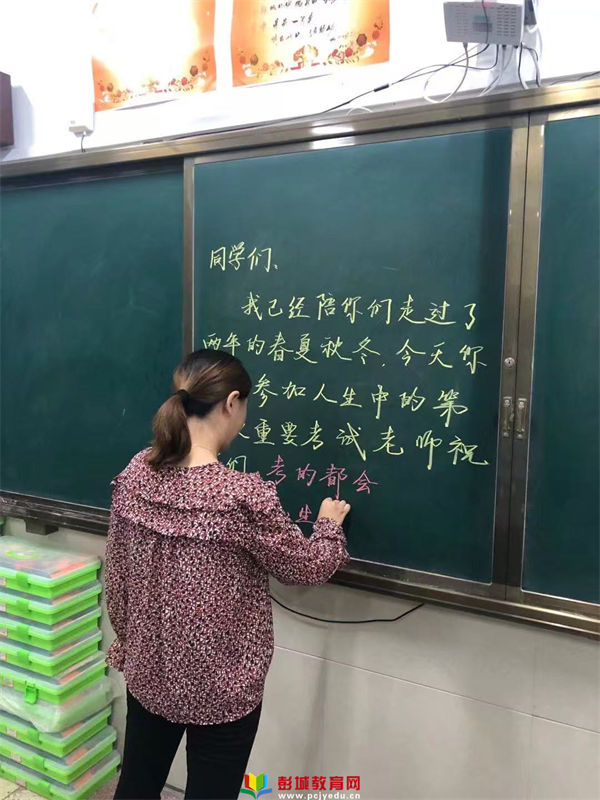 同学们、
我已经陪你们走过了
两年的春夏秋冬.今天你
参加人生中的第
重要考试老师祝
们,考的都会
生
彭城教育网
www.pcjyedu.cn